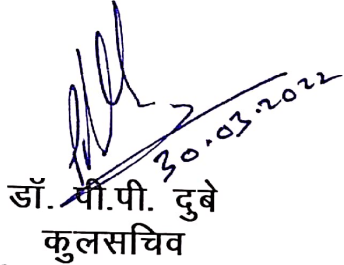 30.03.2022
डॉ. पी.पी. दुबे
कुलसचिव